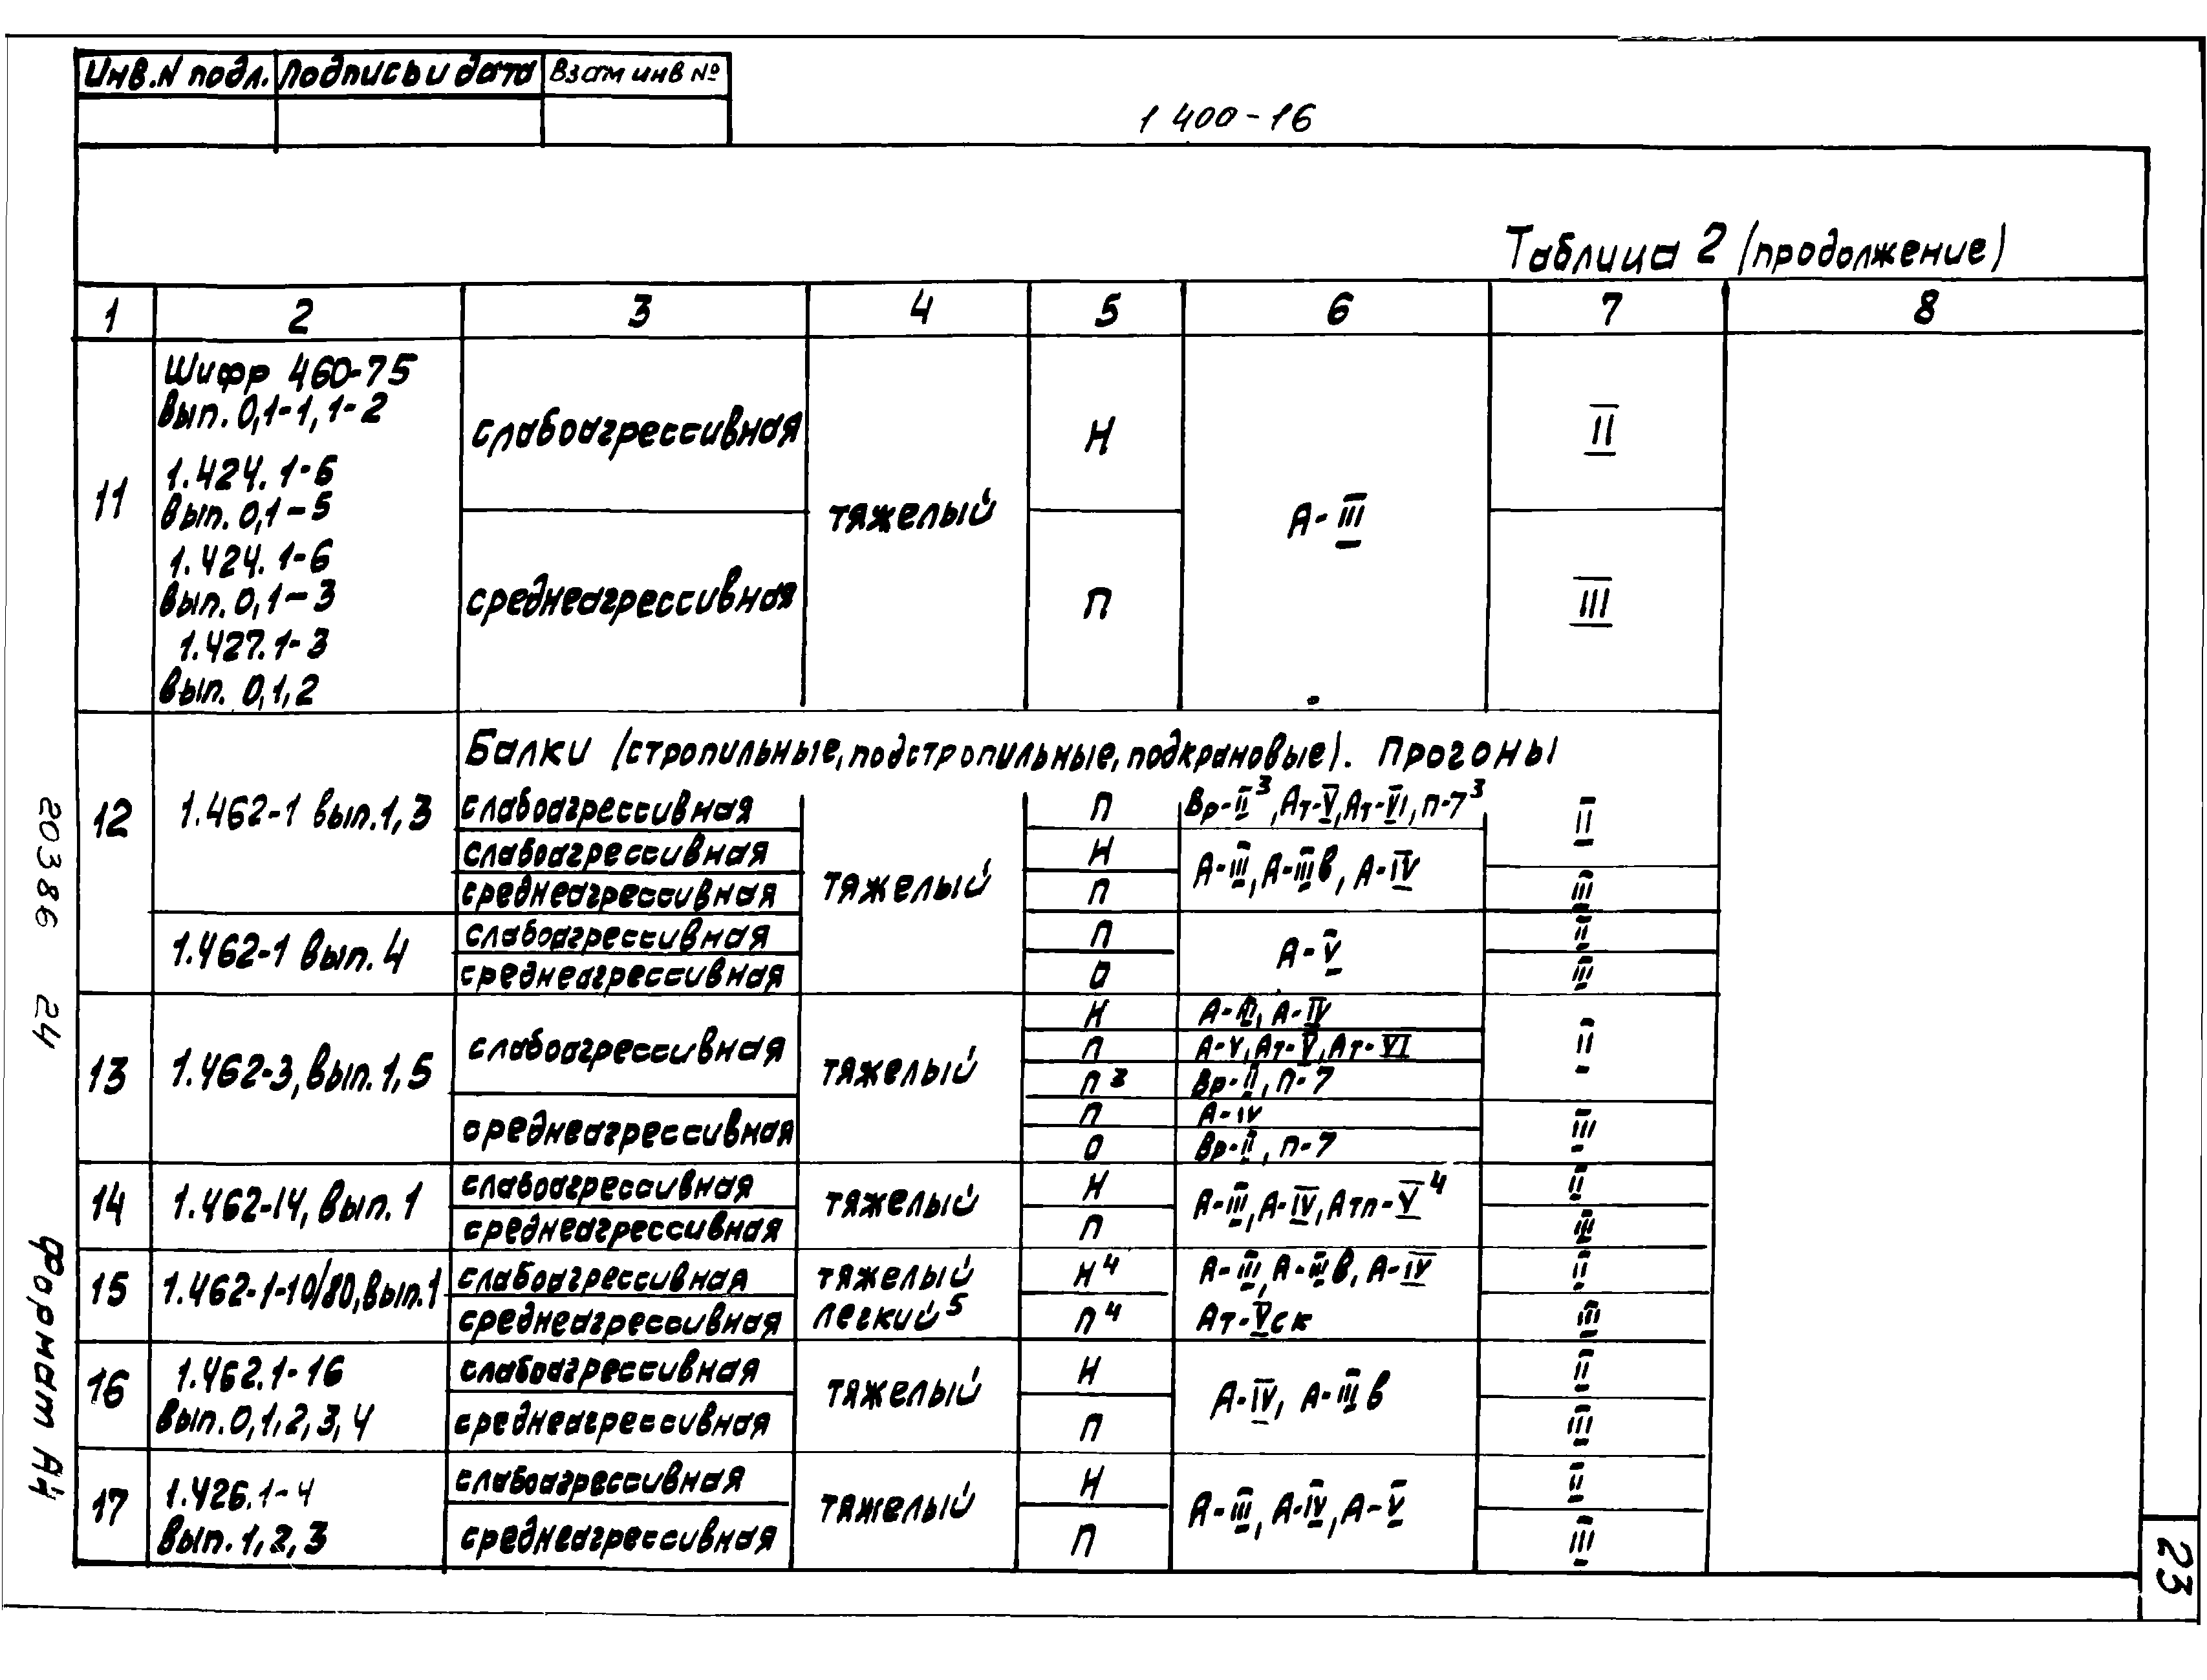 Инв.N подл. Подпись и дата Взам инв №
1 400-16
Таблица 2 (продолжение)
1 2 3 4 5 6 7 8
11
Шифр 460-75
вып. 0,1-1, 1-2
1.424.1-6
вып. 0,1-5
1.424.1-6
вып. 0,1-3
1.427.1-3
вып. 0,1,2
слабоагрессивная Н II
тяжелый А-III
среднеагрессивная П III
Балки (стропильные, подстропильные, подкрановые). Прогоны
12 1.462-1 вып.1,3 слабоагрессивная П Вр-II³, Ат-V, Ат-VI, П-7³ II
слабоагрессивная Н А-III, А-IIIв, А-IV
тяжелый
среднеагрессивная П III
1.462-1 вып.4 слабоагрессивная П А-V II
среднеагрессивная О III
13 1.462-3, вып.1,5 слабоагрессивная тяжелый Н А-III, А-IV II
П А-V, Ат-V, Ат-VI
П³ Вр-II, П-7
среднеагрессивная П А-IV III
О Вр-II, П-7
14 1.462-14, вып.1 слабоагрессивная тяжелый Н А-III, А-IV, Атп-V⁴ II
среднеагрессивная П III
15 1.462-1-10/80, вып.1 слабоагрессивная тяжелый Н⁴ А-III, А-IIIв, А-IV II
среднеагрессивная легкий⁵ П⁴ Ат-Vск III
16 1.462.1-16 слабоагрессивная тяжелый Н А-IV, А-IIIв II
вып.0,1,2,3,4 среднеагрессивная П III
17 1.426.1-4 слабоагрессивная тяжелый Н А-III, А-IV, А-V II
вып.1,2,3 среднеагрессивная П III
20386 24
Формат А4
23